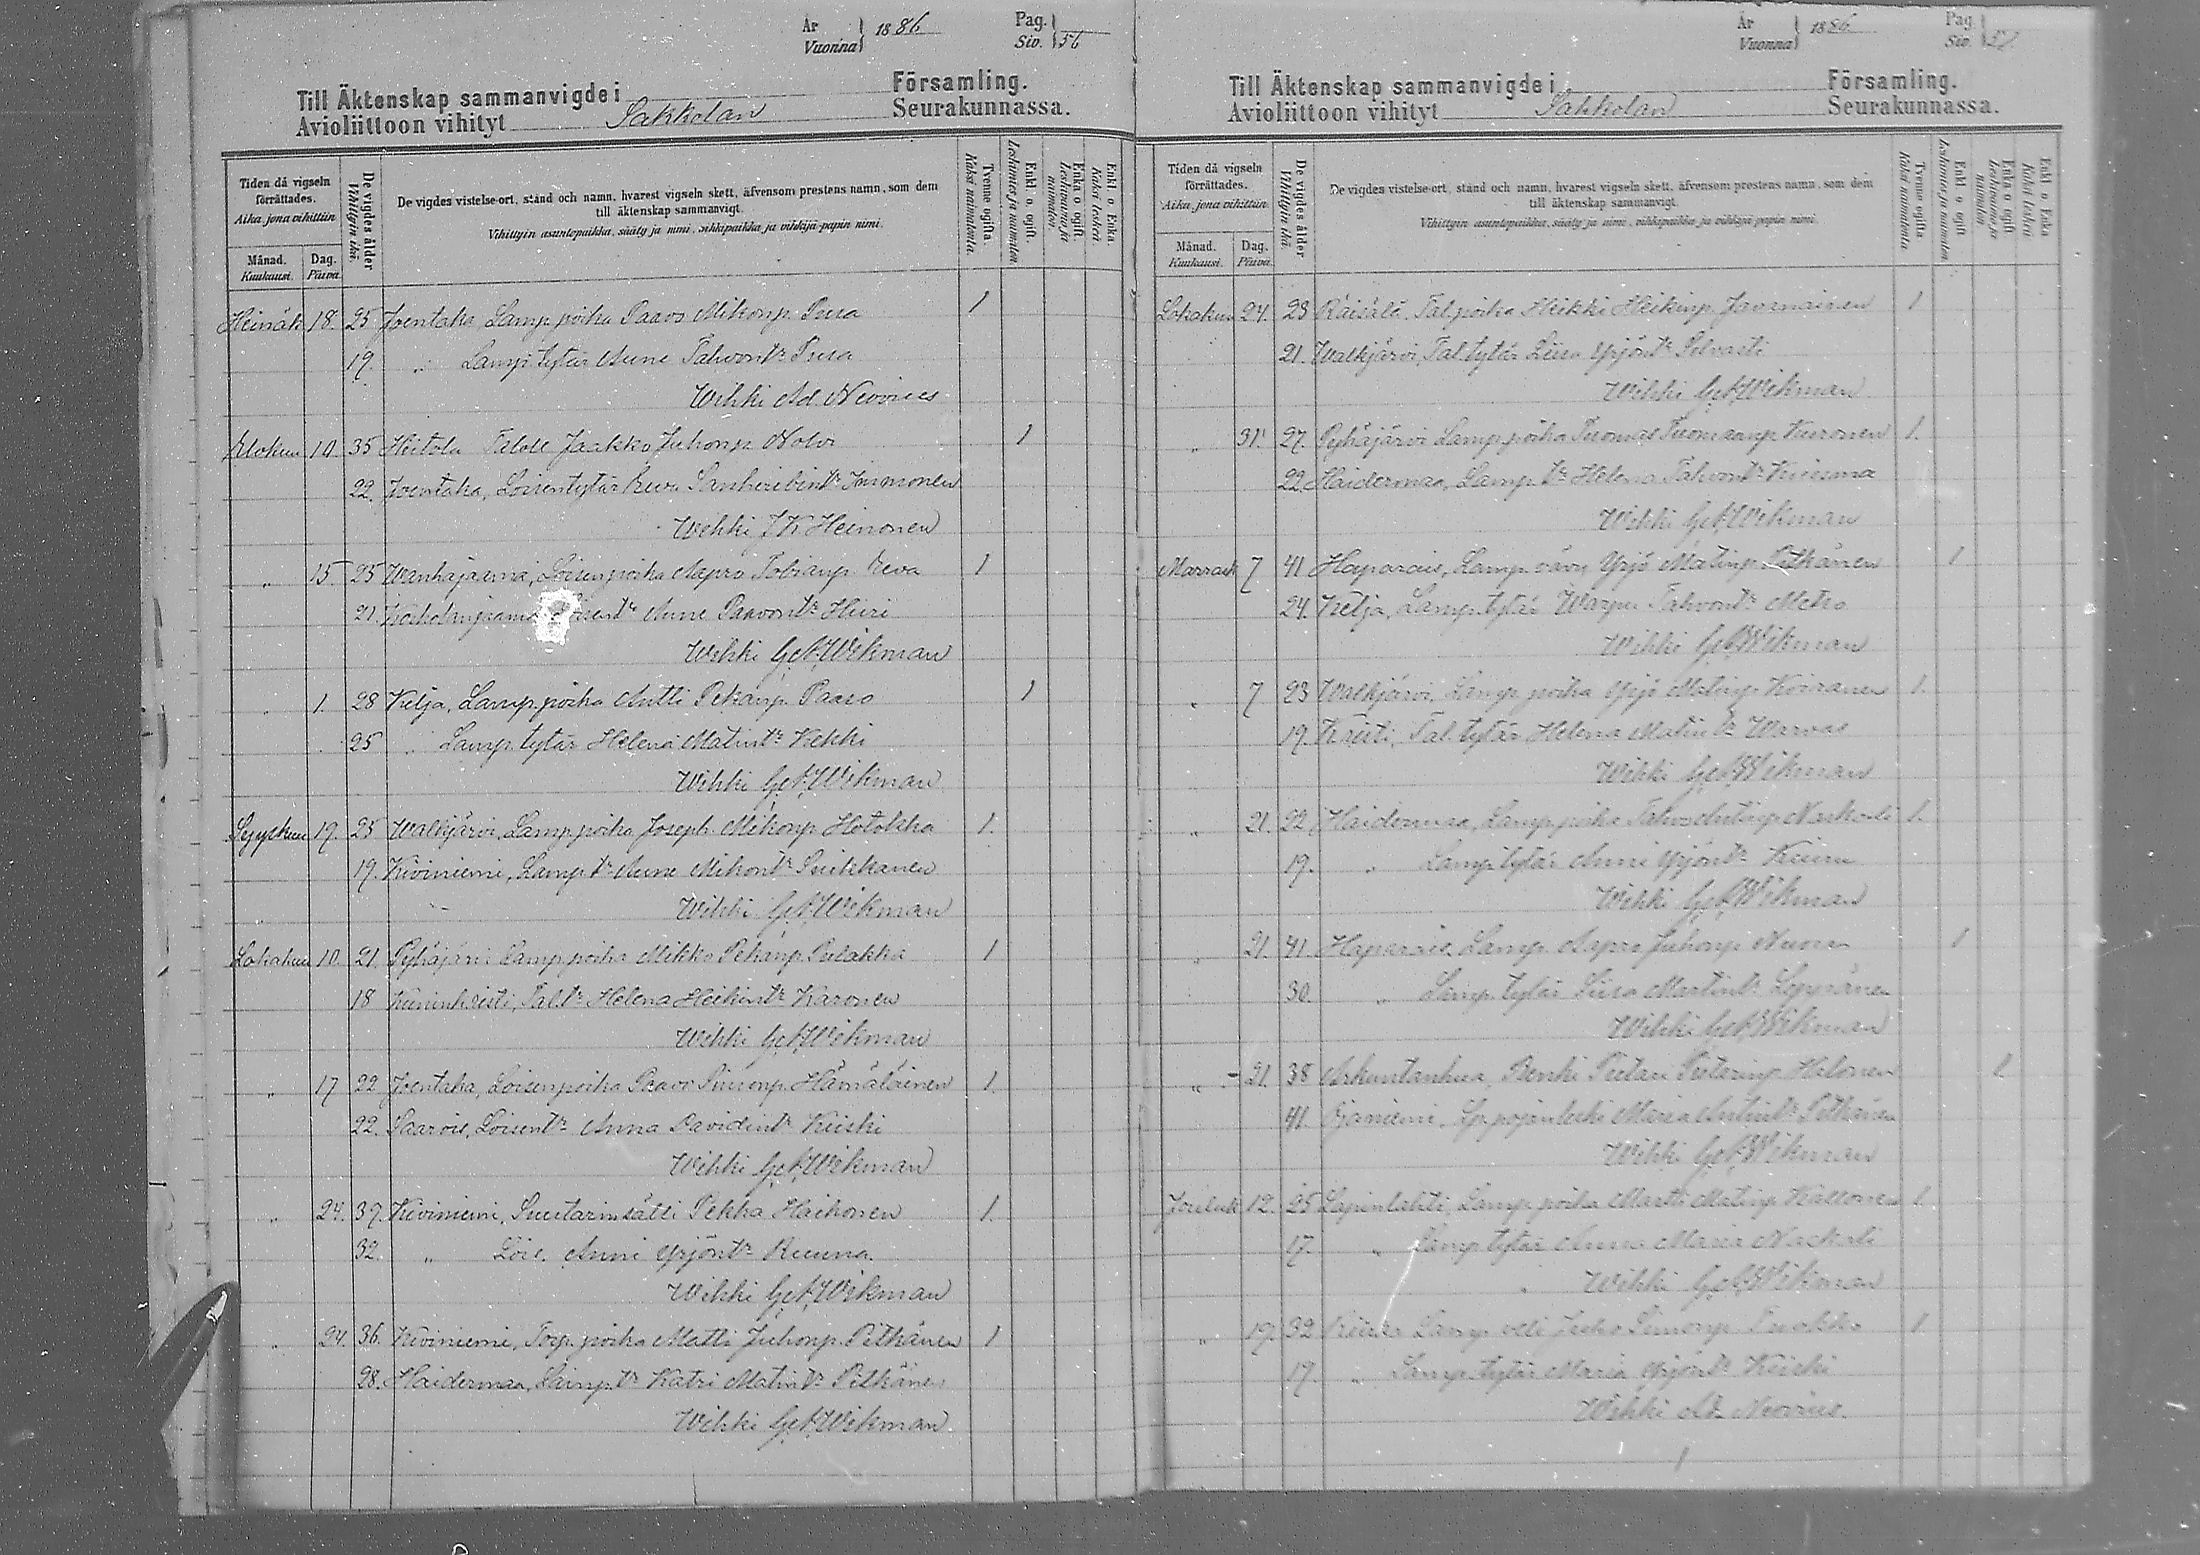 År
Vuonna 1886
Pag.
Siv. 56
Till Äktenskap sammanvigde i Församling.
Avioliittoon vihityt Sakkolan Seurakunnassa.
Tiden då vigseln förrättades.
Aika, jona vihittiin
Månad.
Kuukausi.
Dag.
Päivä
De vigdes ålder
Vihittyin ikä.
De vigdes vistelse-ort, stånd och namn, hvarest vigseln skett, äfvensom prestens namn, som dem
till äktenskap sammanvigt.
Vihittyin asuntopaikka, sääty ja nimi, vihkipaikka ja vihkijä-papin nimi.
Tvenne ogifta.
Kaksi naimatonta.
Enkl. o. ogift.
Leskimies ja naimaton.
Enka o. ogift.
Leskivaimo ja naimaton.
Enkl. o Enka
Kaksi leskeä
Heinäk 18. 25 Joentaka Lamp.poika Paavo Mikonp. Pusa 1
19. " Lamp.tytär Anne Tahvont:r Pusa
Wihki Ad. Neovius
Elokuu 10 35 Hiitola Jaakko Juhonp. 1
22. Joentaka, Loisentytär Eeva Immonen
Wihki J K Heinonen
" 15 25 Wanhajaama, Loisenpoika Aapro Tobianp. Eeva 1
21. Anne Paavont:r Hiiri
Wihki G.A.Wikman
" 1. 28 Kelja, Lamp.poika Antti Pekanp. Paaso 1
25 " Lamp.tytär Helena Matint:r Kekki
Wihki G.A.Wikman
Syyskuu 19. 25 Walkjärvi, Lamp.poika Joseph Mikonp Hotokka 1.
19. Kiviniemi, Lamp.t:r Anne Mikont:r Suikkanen
Wihki G.A.Wikman
Lokakuu 10. 21. Pyhäjärvi Lamp.poika Mikko Pekanp. Pulakka 1
18 Tal.t:r Helena Heikint:r Karonen
Wihki G.A.Wikman
" 17 22 Joentaka, Loisenpoika Paavo Simonp. Hämäläinen 1.
22. Saarois, Loisent:r Anna Davidint:r Kiiski
Wihki G.A.Wikman
" 24. 39. Kiviniemi, Pekka Haikonen 1.
32. " Lois. Anni Yrjönt:r Ruuna.
Wihki G.A.Wikman
" 24. 36. Kiviniemi, Torp.poika Matti Juhonp. Pitkänen 1
28. Haidermaa, Lamp.t:r Katri Matint:r Pitkänen
Wihki G.A.Wikman.
År
Vuonna 1886
Pag
Siv. 57
Till Äktenskap sammanvigde i Församling.
Avioliittoon vihityt Sakkolan Seurakunnassa.
Tiden då vigseln förrättades.
Aika, jona vihittiin.
Månad.
Kuukausi.
Dag.
Päivä
De vigdes ålder
Vihittyin ikä.
De vigdes vistelse-ort, stånd och namn, hvarest vigseln skett, äfvensom prestens namn, som dem
till äktenskap sammanvigt.
Vihittyin asuntopaikka, sääty ja nimi, vihkipaikka ja vihkijä-papin nimi.
Tvenne ogifta
Kaksi naimatonta
Enkl o. ogift
Leskimies ja naimaton
Enka o ogift
Leskivaimo ja naimaton
Enkl o Enka
Kaksi leskeä
Lokakuu 24. 23 Räisälä, Tal.poika Heikki Heikinp. 1
21. Walkjärvi, Tal.tytär Liisa Yrjönt:r
Wihki G.A.Wikman
" 31. 27. Pyhäjärvi Lamp.poika Tuomas Tuomaanp. Kuronen 1.
22. Haidermaa, Lamp.t:r Helena Tahvont:r Kuisma
Wihki G.A.Wikman
Marrask 7 41 Haparais, Lamp.vävy Yrjö Matinp. Pitkänen 1
24. Kelja, Lamp.tytär Tahvont:r
Wihki G.A.Wikman
" 7 23 Walkjärvi, Lamp.poika Yrjö Matinp. Koiranen 1.
19. Tal.tytär Helena Matint:r Warvas
Wihki G.A.Wikman
" 21. 22. Haidermaa, Lamp.poika Tahvo Antinp. 1.
19. " Lamp.tytär Anni Yrjönt:r Kiuru
Wihki G.A.Wikman
" 21. 41. Haparais, Lamp. Aapro Juhonp. Nuora 1
30 " Lamp.tytär Liisa Martint:r
Wihki G.A.Wikman
" 21. 38 Arkuntanhua, Renki Pietari Pietarinp. Halonen 1.
41. Ojaniemi, Maria Antint:r Pitkänen
Wihki G.A.Wikman
Jouluk 12. 25 Lapinlahti, Lamp.poika Martti Matinp. Kallonen 1.
17. " Lamp.tytär Anna Maria
Wihki G.A.Wikman
" 19. 32 Lamp.veli Juho Simonp. 1.
17. " Lamp.tytär Maria Yrjönt:r Kiiski
Wihki Ad. Neovius.